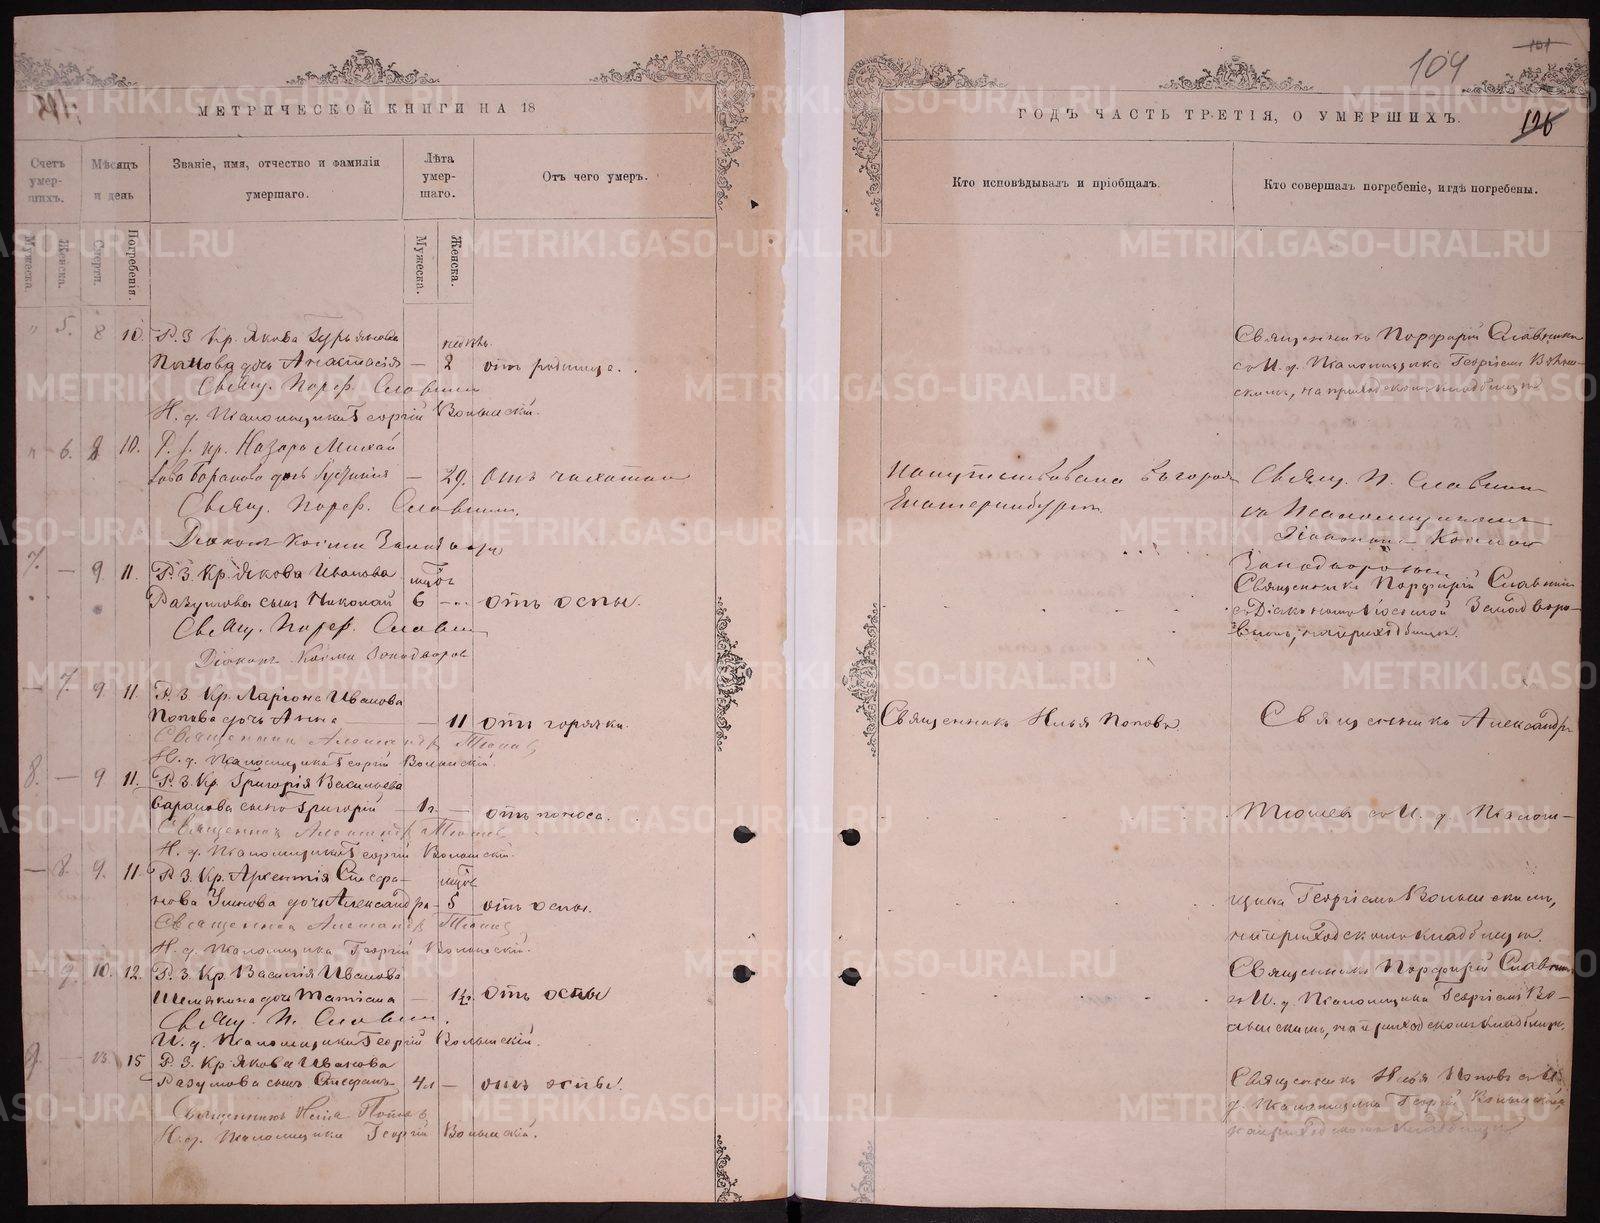 МЕТРИЧЕСКОЙ КНИГИ НА 18
Счетъ умер-шихъ.
Мѣсяцъ и день
Званіе, имя, отчество и фамилія
умершаго.
Лѣта умер-шаго.
Отъ чего умеръ.
Мужеска.
Женска.
Смерти.
Погребенія.
Мужеска.
Женска.
5. 8 10. Р. З. Кр. Якова
Попова дочь Анастасія — 2 отъ родимца.
Свящ. Порф. Славнинъ
И. д. Псаломщика Георгій Волынскій.
6. 8 10. Р. З. кр. Назара Михай
лова Баранова дочь — 29. Отъ чахотки
Свящ. Порф. Славнинъ
Діаконъ Косма
7. — 9. 11. Р. З. Кр. Якова Иванова
Разумова сынъ Николай 6 — отъ оспы.
Свящ. Порф. Славнинъ
Діаконъ Косма
— 7. 9. 11. Р. З. Кр. Ларіона Иванова
Попова дочь Анна — 11 отъ горячки.
Священникъ Александръ
И. д. Псаломщика Георгій Волынскій.
8. — 9 11. Р. З. Кр. Григорія Васильева
Баранова сынъ Григорій — 1 г. — отъ поноса.
Священникъ Александръ
И. д. Псаломщика Георгій Волынскій.
— 8. 9. 11. Р. З. Кр. Арсентія Стефа-
нова дочь Александра — 5 отъ оспы.
Священникъ Александръ
И. д. Псаломщика Георгій Волынскій.
9. 10. 12. Р. З. Кр. Василія Иванова
Шемякина дочь Татіана — 1½ г. отъ оспы
Свящ. П. Славнинъ.
И. д. Псаломщика Георгій Волынскій.
9 — 13 15 Р. З. Кр. Якова Иванова
Разумова сынъ Стефанъ 4 л — отъ оспы.
Священникъ Илья Поповъ
И. д. Псаломщика Георгій Волынскій.
101
104
126
ГОДЪ ЧАСТЬ ТРЕТІЯ, О УМЕРШИХЪ.
Кто исповѣдывалъ и пріобщалъ.
Кто совершалъ погребеніе, и гдѣ погребены.
Священникъ Порфирій Славнинъ
съ И. д. Псаломщика Георгіемъ Волын-
скимъ, на приходскомъ кладбищѣ
Напутствована въ городѣ
Екатеринбургѣ
Свящ. П. Славнинъ
съ Псаломщикомъ
Діакономъ Космою
Священникъ Порфирій Славнинъ
съ Діакономъ Космой
Священникъ Илья Поповъ
Священникъ Александръ
съ И. д. Псалом-
щика Георгіемъ Волынскимъ,
на приходскомъ кладбищѣ.
Священникъ Порфирій Славнинъ
съ И. д. Псаломщика Георгіемъ Во-
лынскимъ, на приходскомъ кладбищѣ.
Священникъ Илья Поповъ съ И.
д. Псаломщика Георгій Волынскій,
на приходскомъ кладбищѣ
METRIKI.GASO-URAL.RU